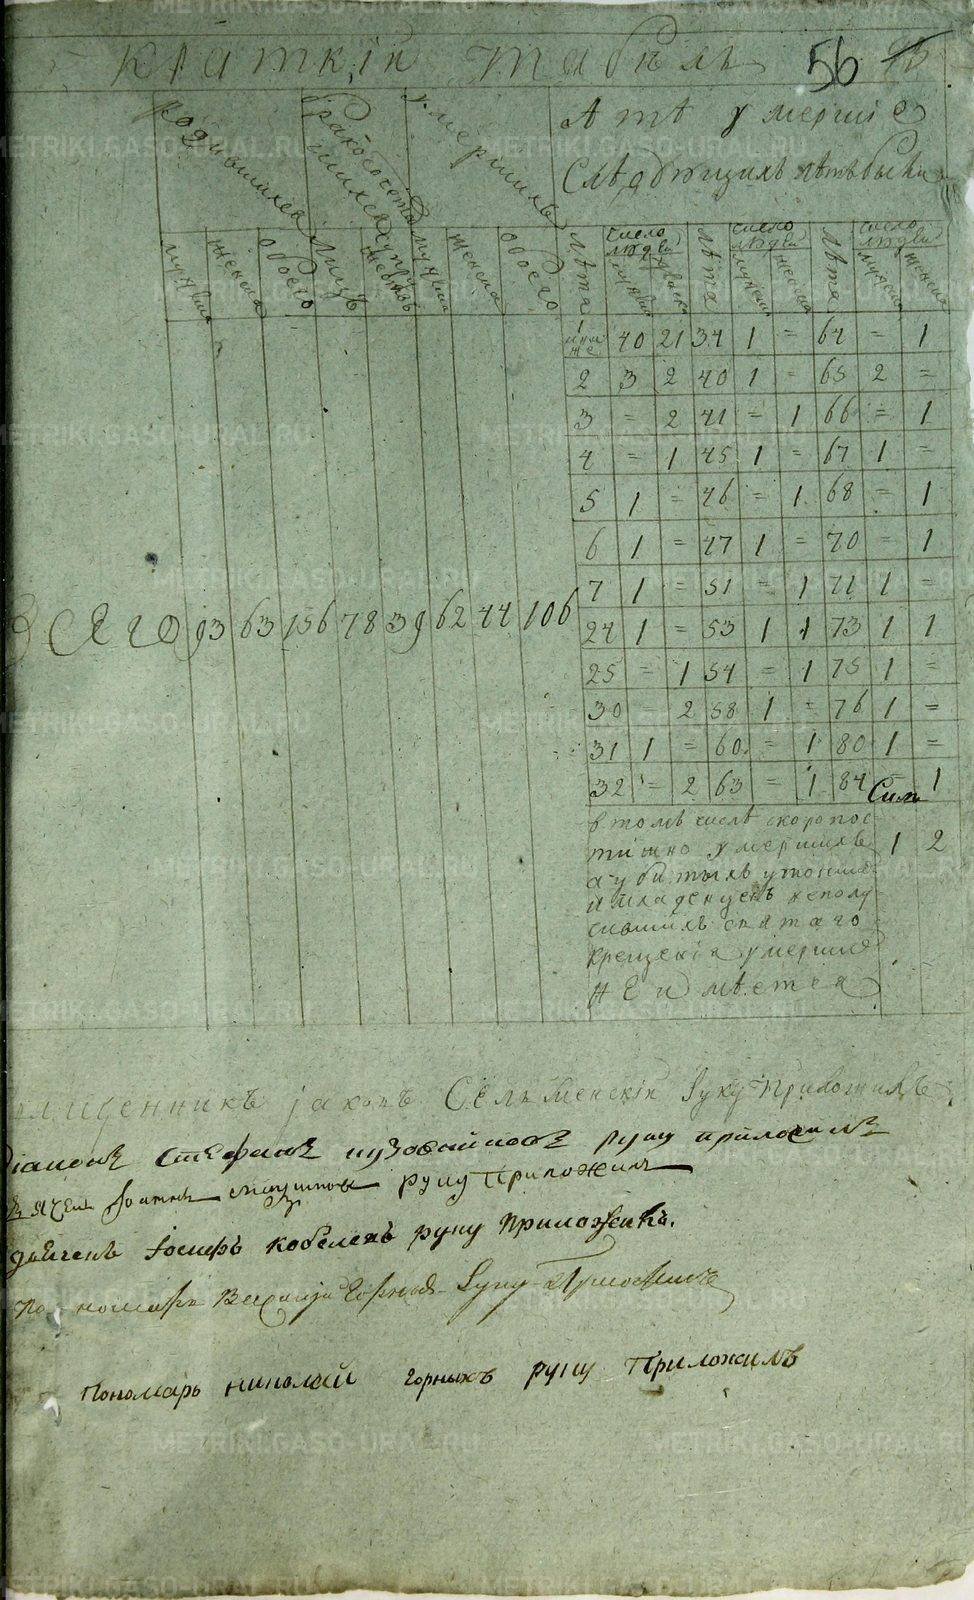 краткій табель 56
Родившихся
бракосочетавшихся
умершихъ
А тѣ умершіе
Слѣдующихъ лѣтъ были
мужска женска обоего Лицъ супружествъ мужска женска обоего Лѣта число людей Лѣта число людей Лѣта число людей
мужска женска мужска женска мужска женска
40 21 34 1 = 64 = 1
2 3 2 40 1 = 65 2 =
3 = 2 41 = 1 66 = 1
4 = 1 45 1 = 67 1 =
5 1 = 46 = 1 68 = 1
6 1 = 47 1 = 70 = 1
7 1 = 51 = 1 71 1 =
Всего 93 63 156 78 39 62 44 106
24 1 = 53 1 1 73 1 1
25 = 1 54 = 1 75 1 =
30 = 2 58 1 = 76 1 =
31 1 = 60 = 1 80 1 =
32 = 2 63 = 1 84 1
в томъ числѣ скоропос
тижно умершихъ 1 2
а убитыхъ утопших
и младенцевъ неполу
сившихъ святаго
крещенія умершие
не имѣется
священникъ Іаковъ руку приложилъ
Діаконъ Стефанъ руку приложилъ
Дьячекъ Іоаннъ руку приложилъ
дьячекъ Іосифъ кобелевъ руку приложилъ.
пономарь руку приложилъ
Пономарь николай горныхъ руку приложилъ
METRIKI.GASO-URAL.RU